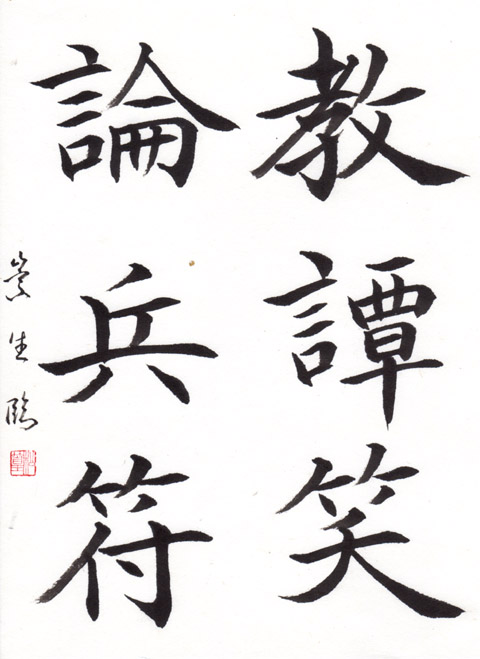 教譚笑
論兵符
崇生臨